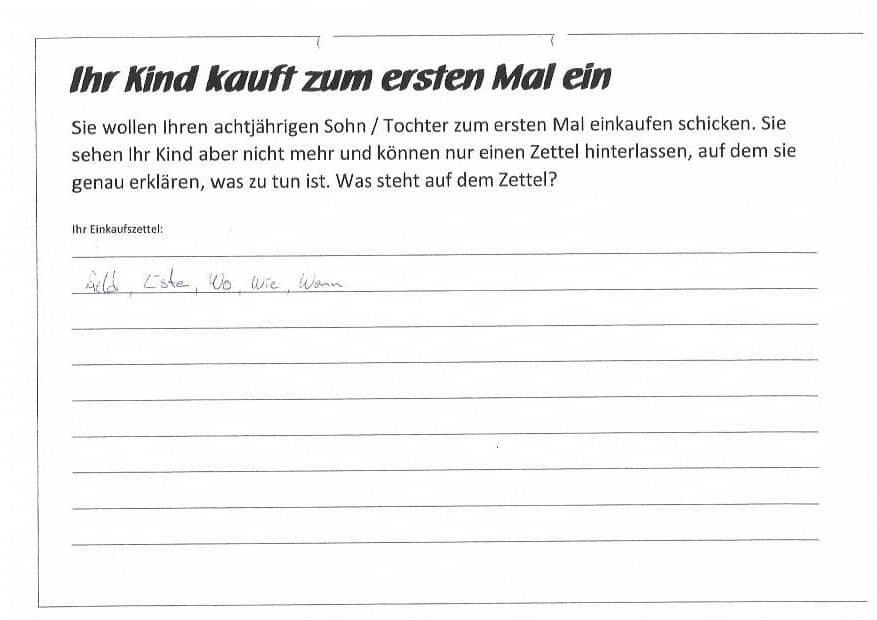 Ihr Kind kauft zum ersten Mal ein
Sie wollen Ihren achtjährigen Sohn / Tochter zum ersten Mal einkaufen schicken. Sie
sehen Ihr Kind aber nicht mehr und können nur einen Zettel hinterlassen, auf dem sie
genau erklären, was zu tun ist. Was steht auf dem Zettel?
Ihr Einkaufszettel:
Geld, Liste, Wo, Wie, Wann